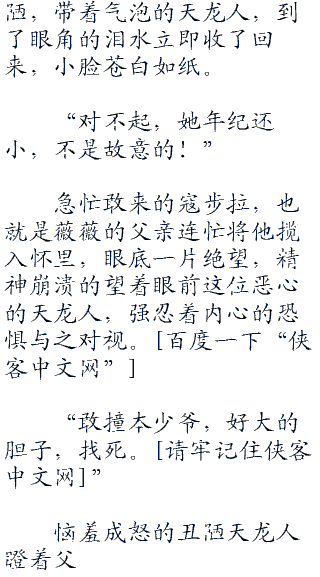 陋，带着气泡的天龙人，到
了眼角的泪水立即收了回
来，小脸苍白如纸。
“对不起，她年纪还
小，不是故意的！”
急忙敢来的寇步拉，也
就是薇薇的父亲连忙将他揽
入怀里，眼底一片绝望，精
神崩溃的望着眼前这位恶心
的天龙人，强忍着内心的恐
惧与之对视。[百度一下“侠
客中文网”]
“敢撞本少爷，好大的
胆子，找死。[请牢记住侠客
中文网]”
恼羞成怒的丑陋天龙人
瞪着父